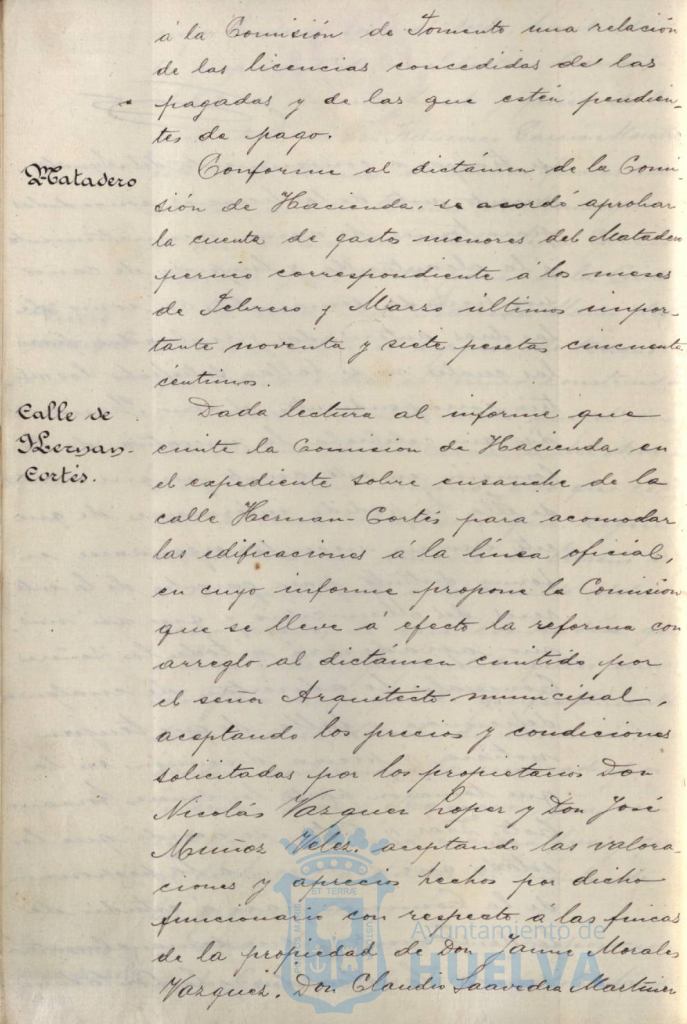 á la Comisión de Fomento una relación
de las licencias concedidas de las
pagadas y de las que estén pendien-
tes de pago.
Matadero
Conforme al dictámen de la Comi-
sión de Hacienda, se acordó aprobar
la cuenta de gastos menores del Matadero
correspondiente á los meses
de Febrero y Marzo últimos impor-
tante noventa y siete pesetas cincuenta
céntimos.
Calle de
Hernan-
Cortés.
Dada lectura al informe que
emite la Comision de Hacienda en
el expediente sobre ensanche de la
calle Hernan-Cortés para acomodar
las edificaciones á la línea oficial,
en cuyo informe propone la Comision
que se lleve á efecto la reforma con
arreglo al dictámen emitido por
el señor Arquitecto municipal,
aceptando los precios y condiciones
solicitadas por los propietarios Don
Nicolás Vazquez Lopez y Don José
Muñoz Velez, aceptando las valora-
ciones y aprecios hechos por dicho
funcionario con respecto á las fincas
de la propiedad de Don Jaime Morales
Vazquez, Don Claudio Saavedra Martinez
Ayuntamiento de
HUELVA